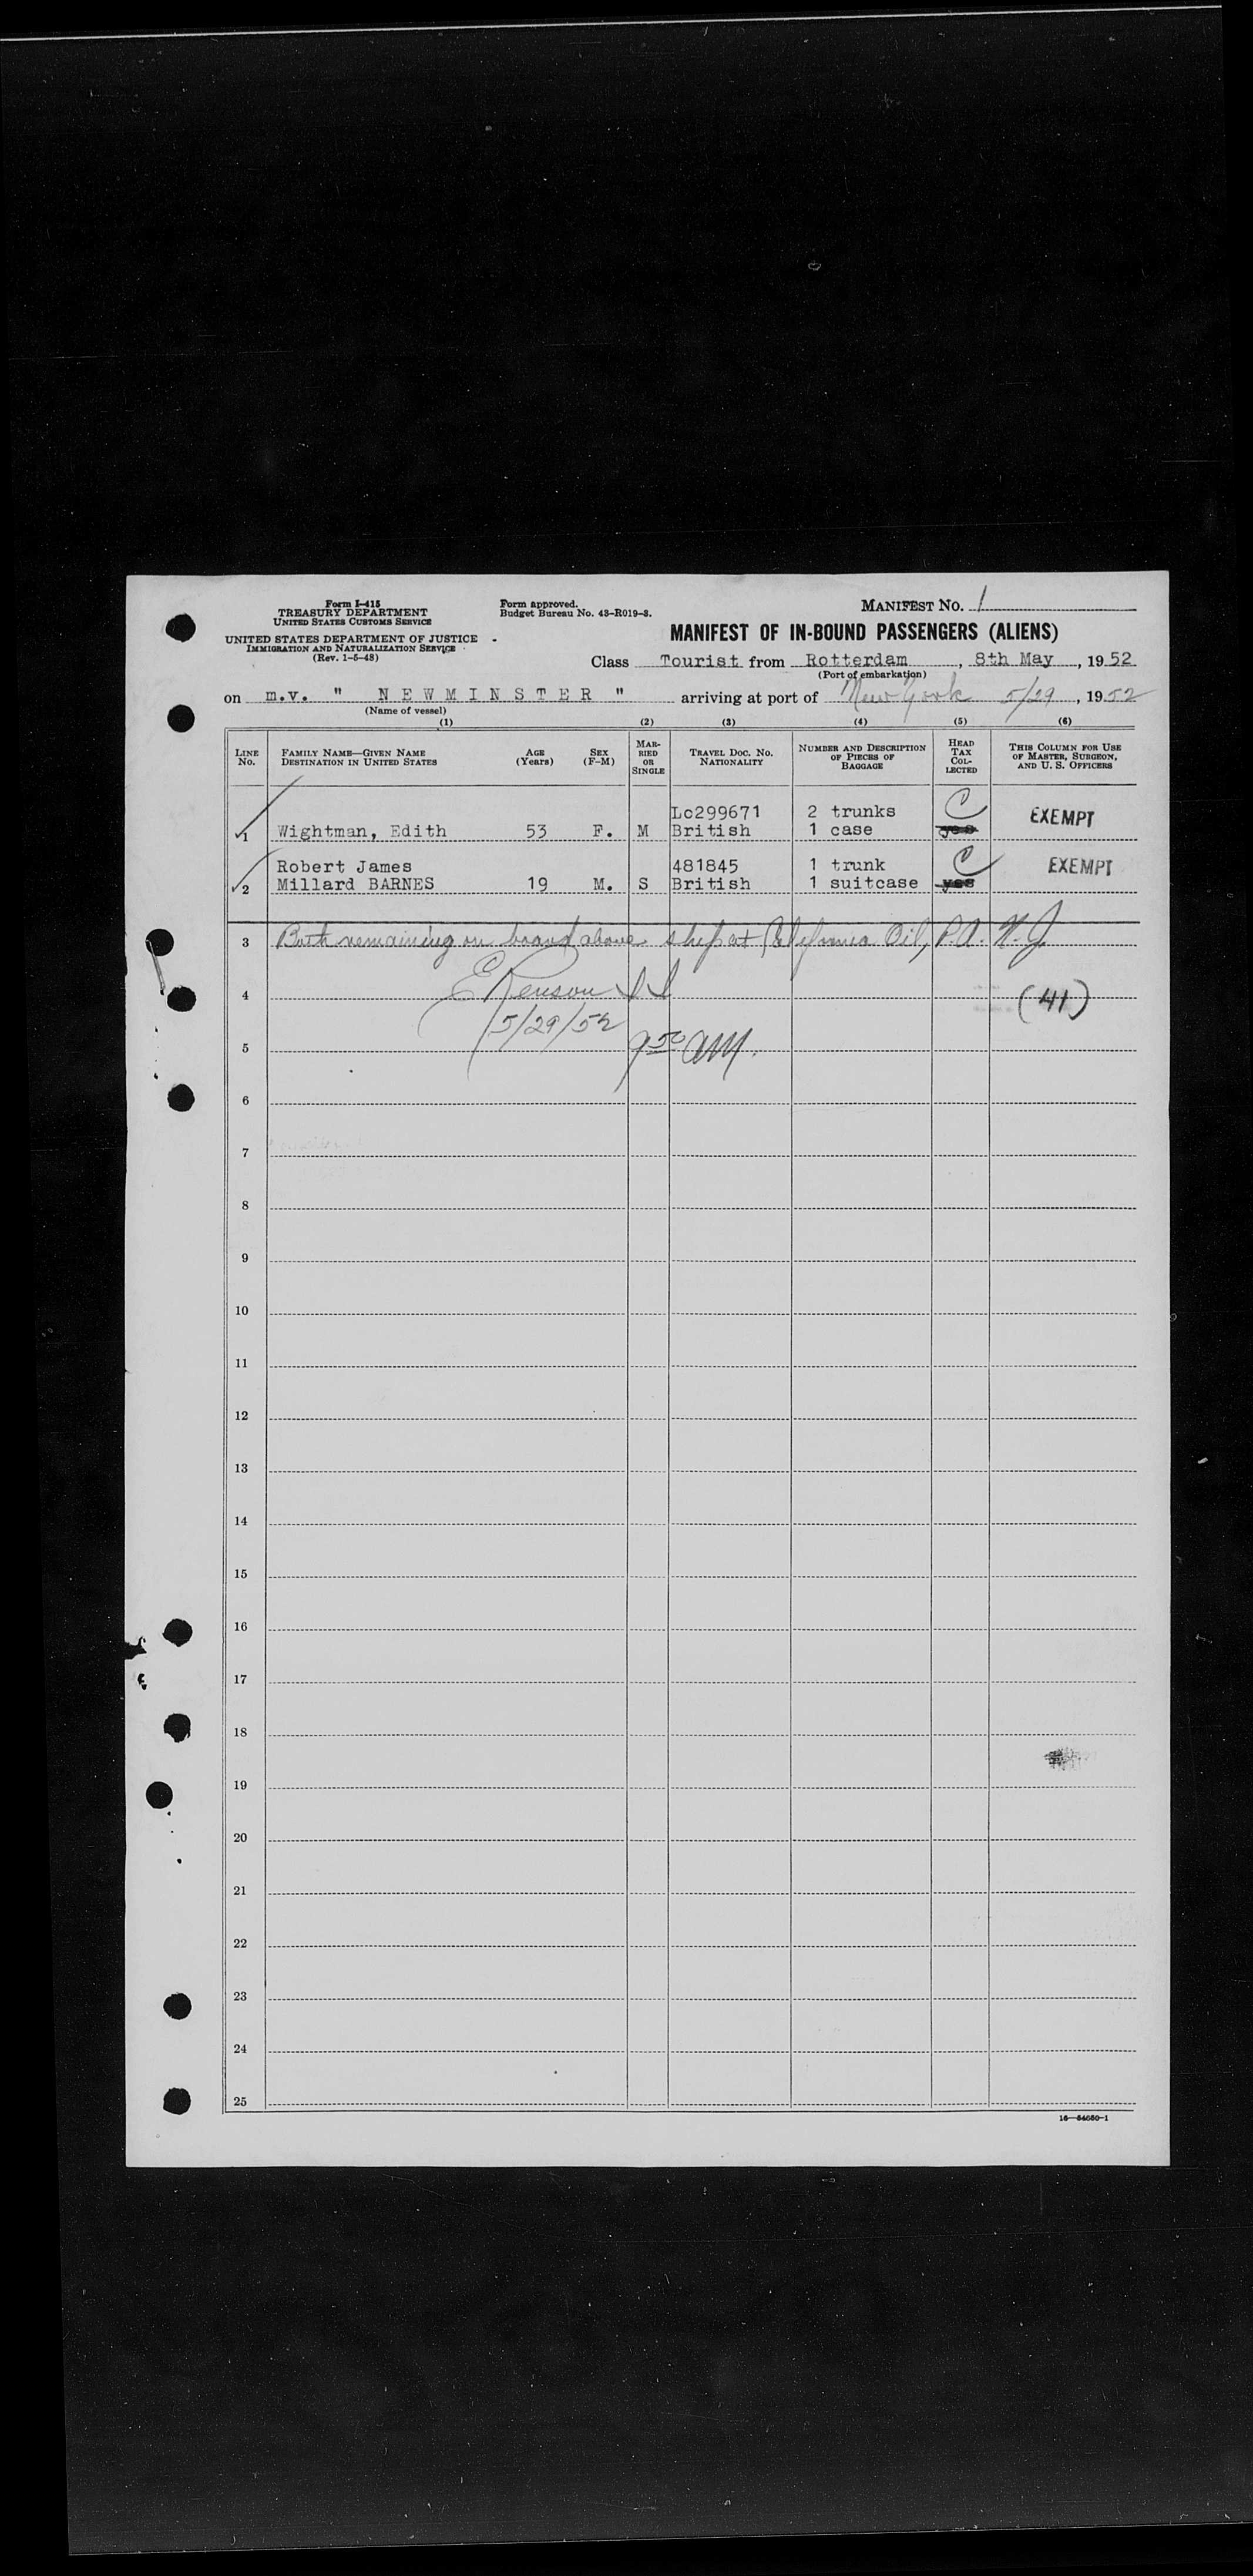 Form I-415
TREASURY DEPARTMENT
UNITED STATES CUSTOMS SERVICE
UNITED STATES DEPARTMENT OF JUSTICE
IMMIGRATION AND NATURALIZATION SERVICE
(Rev. 1-5-48)
Form approved.
Budget Bureau No. 43-R019-3.
MANIFEST NO. 1
MANIFEST OF IN-BOUND PASSENGERS (ALIENS)
Class Tourist from Rotterdam, 8th May, 1952
(Port of embarkation)
on m.v. " NEWMINSTER " arriving at port of New York 5/29, 1952
(Name of vessel)
(1) (2) (3) (4) (5) (6)
LINE No. FAMILY NAME—GIVEN NAME DESTINATION IN UNITED STATES AGE (Years) SEX (F-M) MARRIED OR SINGLE TRAVEL DOC. No. NATIONALITY NUMBER AND DESCRIPTION OF PIECES OF BAGGAGE HEAD TAX COLLECTED THIS COLUMN FOR USE OF MASTER, SURGEON, AND U. S. OFFICERS
Lc299671 2 trunks C EXEMPT
1 Wightman, Edith 53 F. M British 1 case yes
Robert James 481845 1 trunk C EXEMPT
2 Millard BARNES 19 M. S British 1 suitcase yes
3 Both remaining on board above ship at California Oil, P.A. N.J.
4 (41)
5/29/52
5 9 50 AM.
6
7
8
9
10
11
12
13
14
15
16
17
18
19
20
21
22
23
24
25